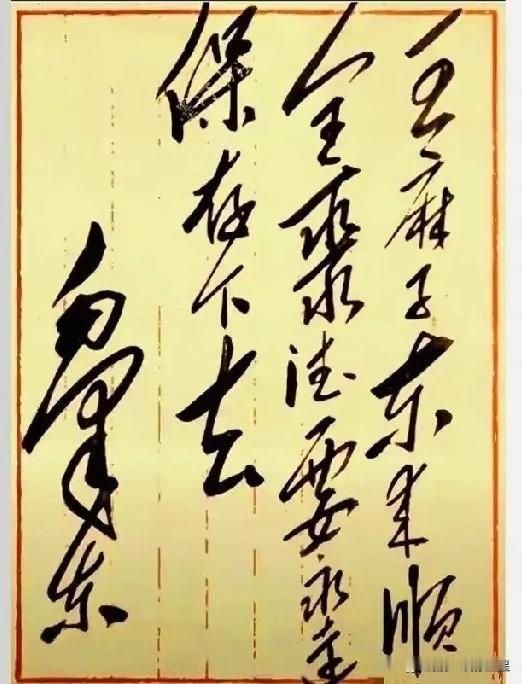 王麻子东来顺
全聚德要永远
保存下去
毛泽东